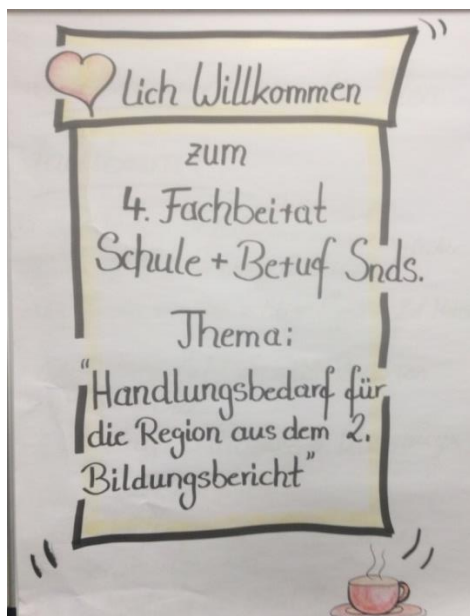 lich Willkommen
zum
4. Fachbeirat
Schule + Beruf Snds.
Thema:
"Handlungsbedarf für
die Region aus dem 2.
Bildungsbericht"